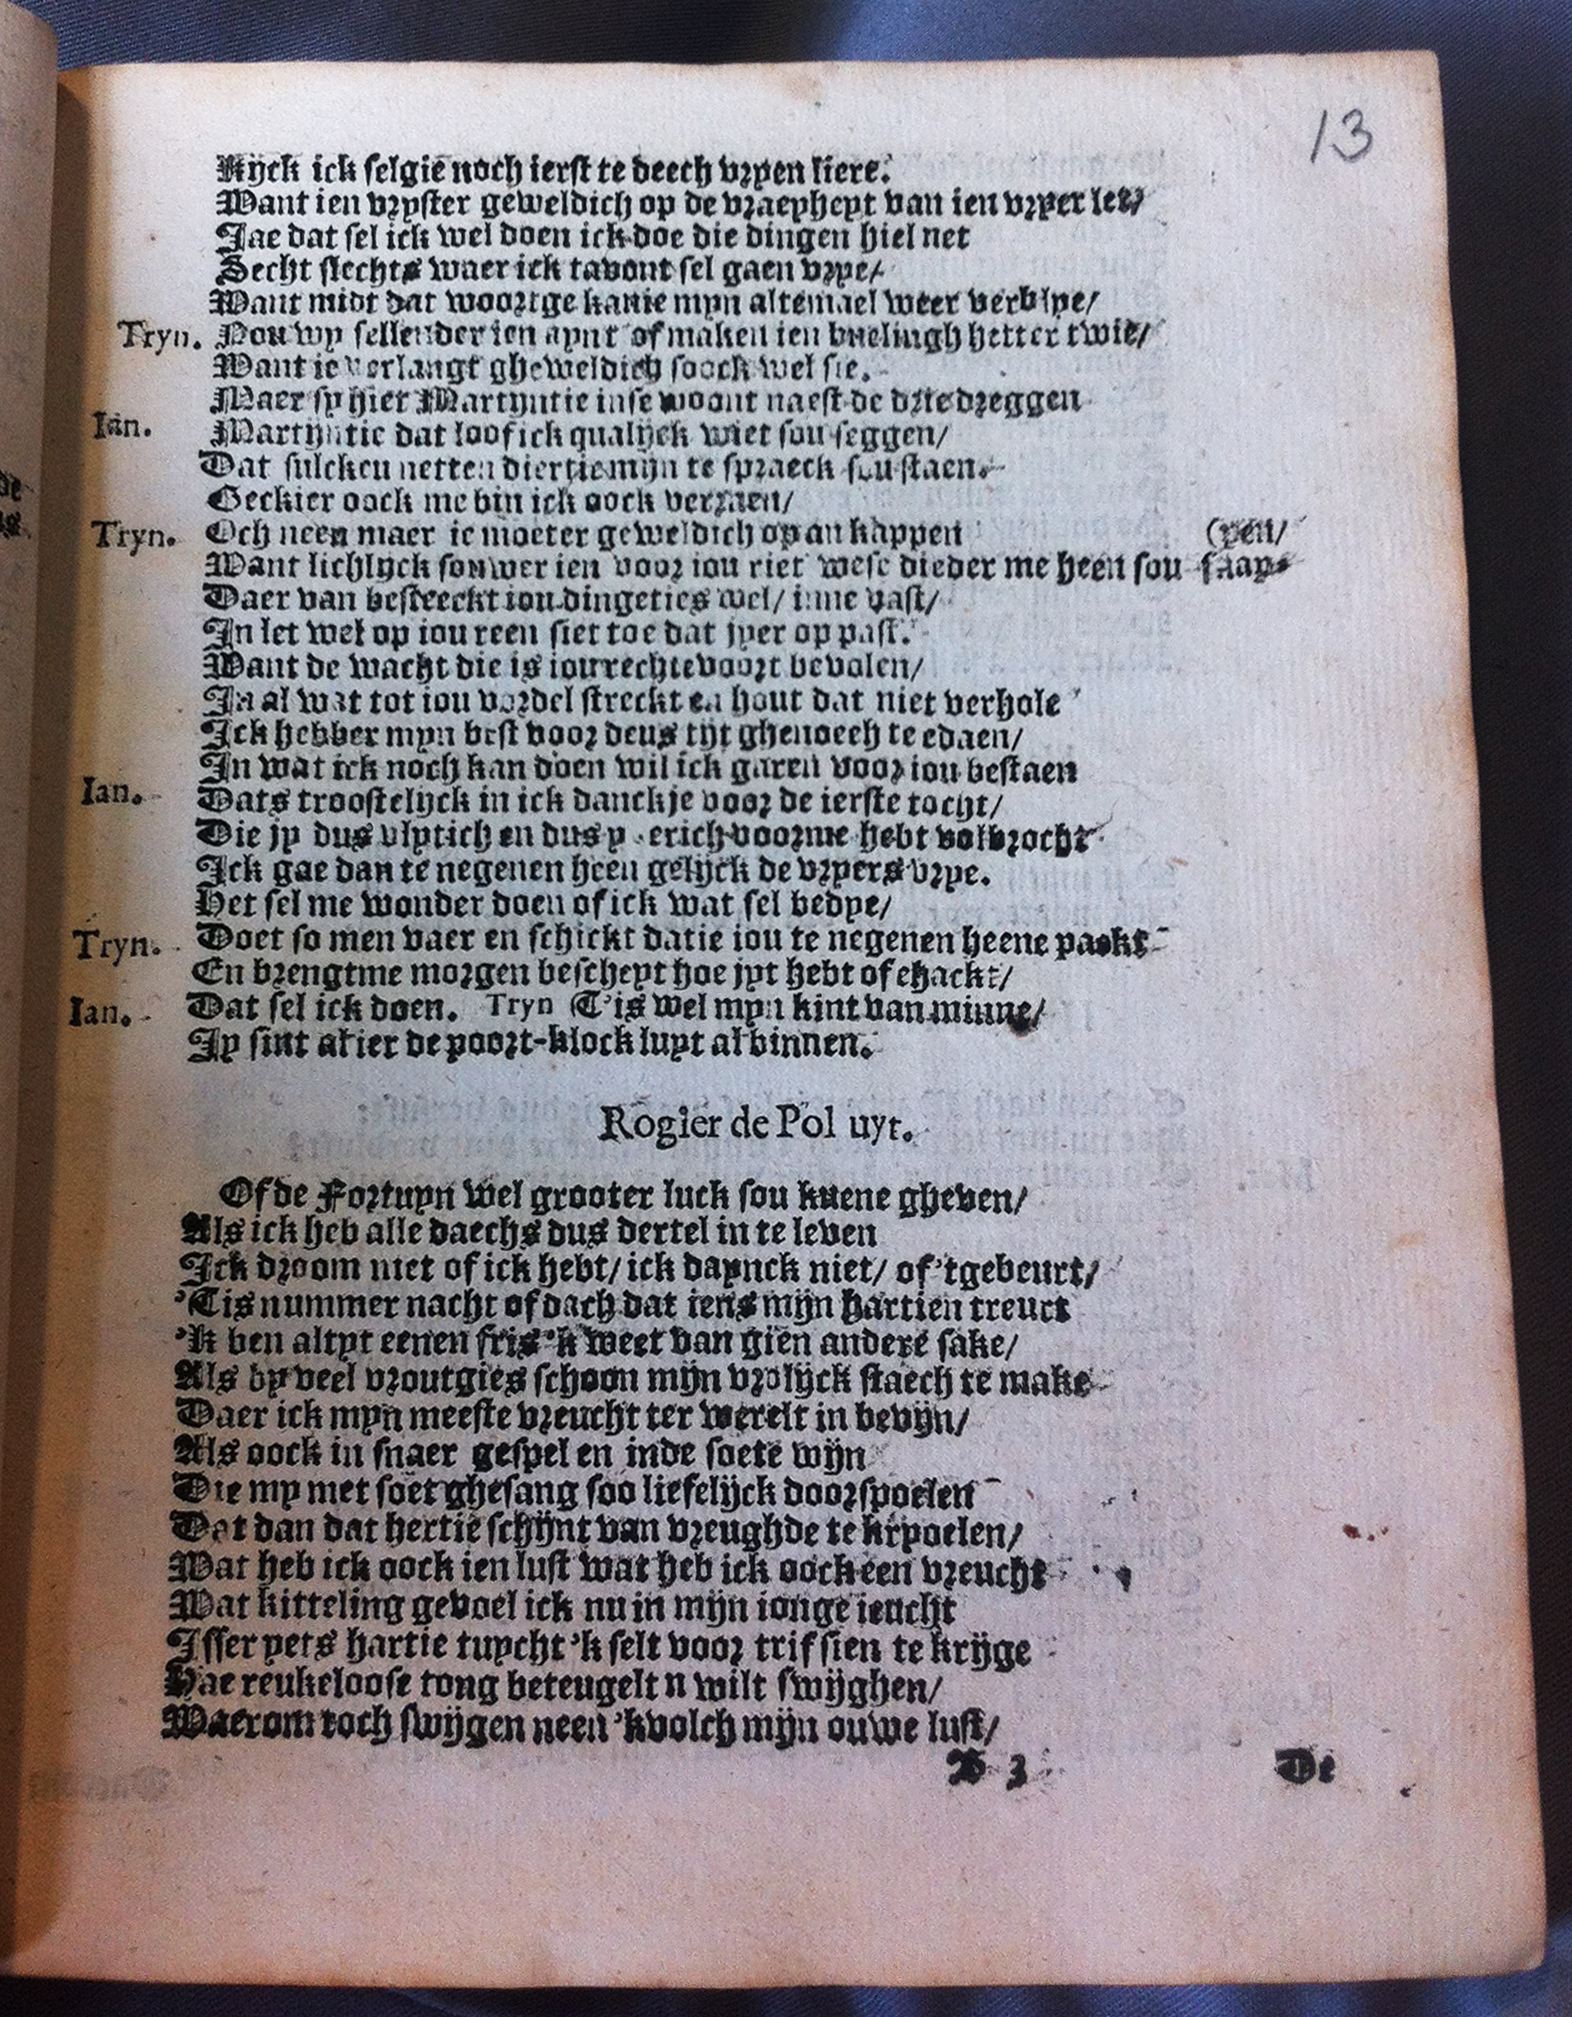 13
Kijck ick selgie noch ierst te deech vryen liere.
Want ien vryster geweldich op de vraeyheyt van ien vryer let/
Jae dat sel ick wel doen ick doe die dingen hiel net
Secht slechts waer ick tavont sel gaen vrye/
Want midt dat woortge kanie myn altemael weer verblye/
Tryn. Nou wy sellender ien aynt of maken ien buelingh hetter twie/
Want ie verlangt gheweldich soock wel sie.
Maer sy hiet Martyntie in se woont naest de drie dreggen
Ian. Martijntie dat loof ick qualijck wiet sou seggen/
Dat sulcken netten diertie mijn te spraeck sou staen.
Geckier oock me bin ick oock verraen/
Tryn. Och neen maer ie moeter geweldich op an kappen (pen/
Want lichlyck souwer ien voor iou riet wese dieder me heen sou snap-
Daer van besteeckt iou dingeties wel/ inne vast/
In let wel op iou reen siet toe dat jyer op past.
Want de wacht die is iou rechtevoort bevolen/
In al wat tot iou vordel streckt en hout dat niet verhole
Ick hebber myn best voor deus tijt ghenoech te edaen/
In wat ick noch kan doen wil ick garen voor iou bestaen
Ian. Dats troostelijck in ick danckje voor de ierste tocht/
Die jy dus vlytich en dus erich voorme hebt volbrocht
Ick gae dan te negenen heen gelijck de vryers vrye.
Het sel me wonder doen of ick wat sel bedye/
Tryn. Doet so men vaer en schickt datie iou te negenen heene packt
En brengtme morgen bescheyt hoe jyt hebt of ehackt/
Ian. Dat sel ick doen. Tryn T'is wel myn kint van minne/
Jy sint al ier de poort-klock luyt al binnen.
Rogier de Pol uyt.
Of de Fortuyn wel grooter luck sou kuene gheven/
Als ick heb alle daechs dus dertel in te leven
Ick droom niet of ick hebt/ ick daynck niet/ of 'tgebeurt/
'Tis nummer nacht of dach dat iens mijn hartien treurt
'K ben altyt eenen fris 'k weet van gien andere sake/
Als by veel vroutgies schoon mijn vrolijck staech te make
Daer ick myn meeste vreucht ter werelt in bevijn/
Als oock in snaer gespel en inde soete wijn
Die my met soet ghesang soo liefelijck doorspoelen
Dat dan dat hertie schijnt van vreughde te krpoelen/
Wat heb ick oock ien lust wat heb ick oock een vreucht
Wat kitteling gevoel ick nu in mijn ionge ieucht
Isser yets hartie tuycht 'k selt voor trif sien te krijge
Hae reukeloose tong beteugelt n wilt swijghen/
Waerom toch swijgen neen 'kvolch mijn ouwe lust/
B 3 De